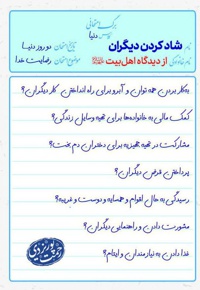 برگ امتحانی
نام
شاد کردن دیگران
کلاس دنیا
نام خانوادگی
از دیدگاه اهل‌بیت
تاریخ امتحان دو روز دنیا
موضوع امتحان رضایت خدا
به‌کار بردن همه توان و آبرو برای راه انداختن کار دیگران؟
کمک مالی به خانواده‌ها برای تهیه وسایل زندگی؟
مشارکت در تهیه جهیزیه برای دختران دم بخت؟
پرداختن قرض دیگران؟
رسیدگی به حال اقوام و همسایه و دوست و غریبه؟
مشورت دادن و راهنمایی دیگران؟
غذا دادن به نیازمندان و ایتام؟